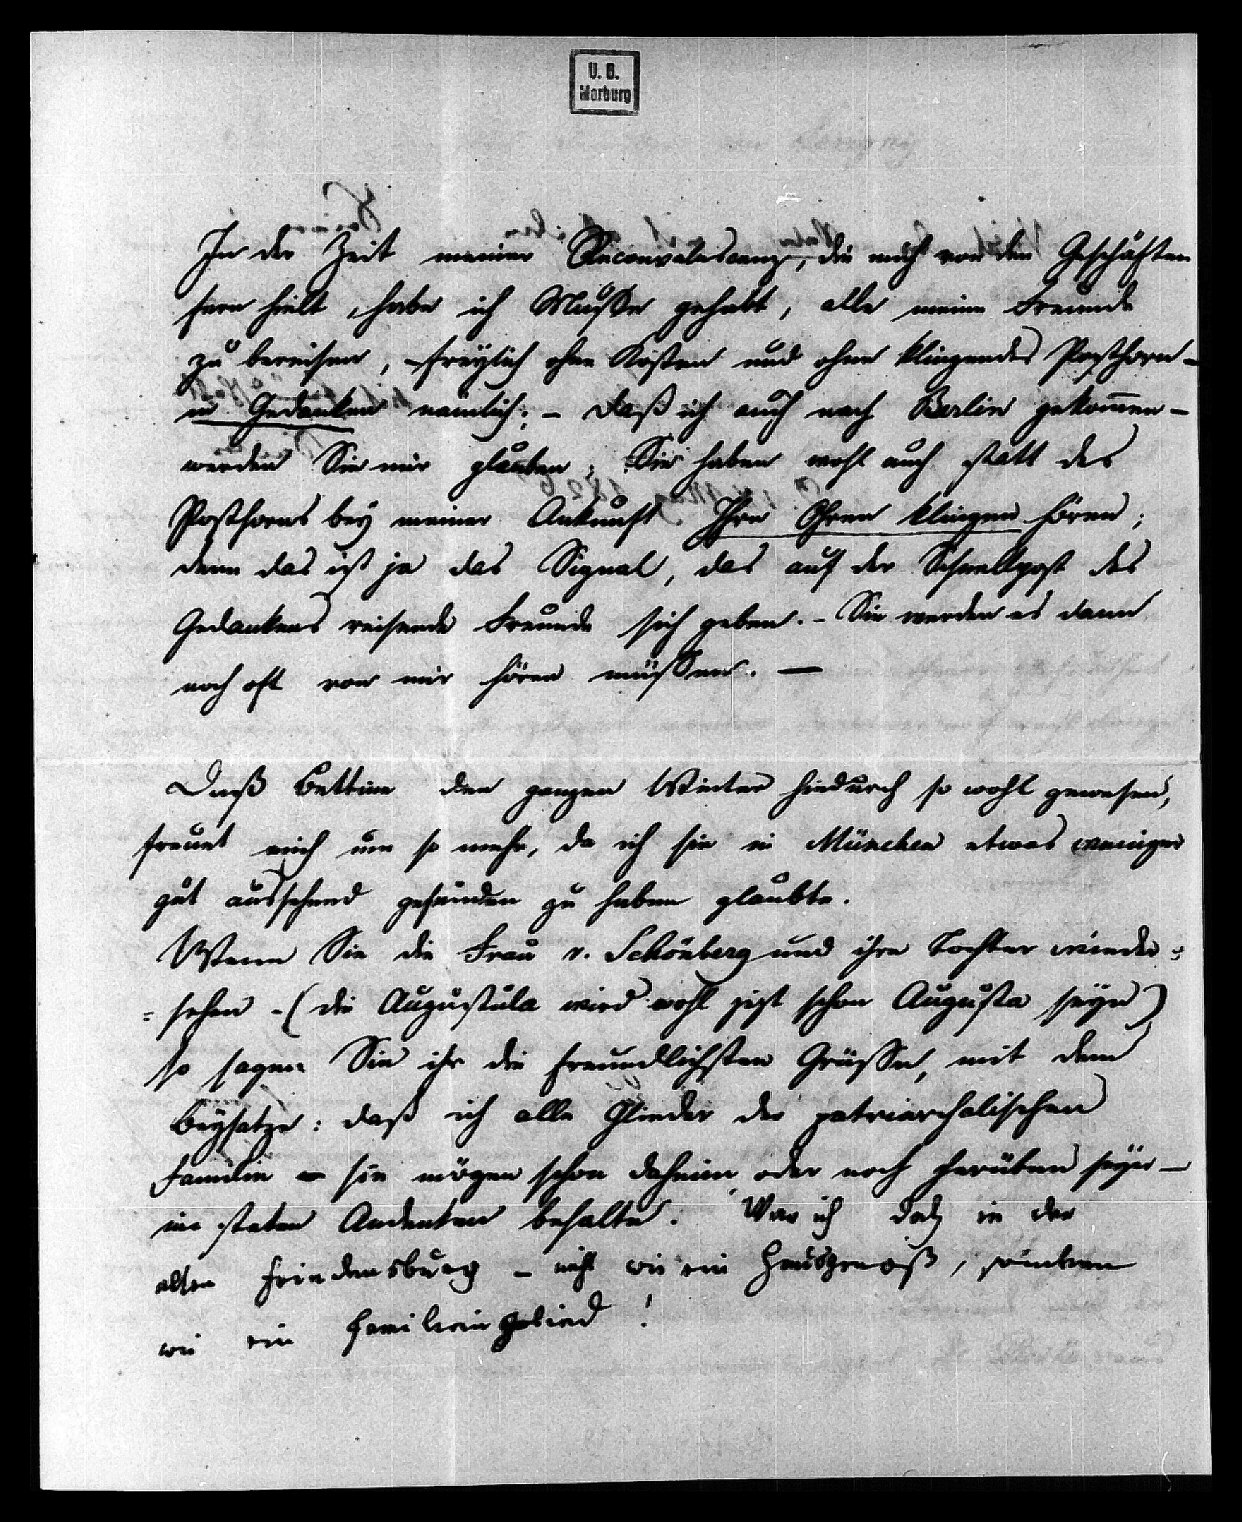 U. B.
Marburg
In der Zeit meiner Reconvalescenz, die mich von den Geschäften
fern hielt, habe ich Muße gehabt, alle meine Freunde
zu bereisen, – freylich ohne Kosten und ohne klingendes Posthorn –
in Gedanken nämlich; – daß ich auch nach Berlin gekommen –
werden Sie mir glauben; Sie haben wohl auch statt des
Posthorns bey meiner Ankunft Ihre Ohren klingen hören;
denn das ist ja das Signal, das auf der Schnellpost des
Gedankens reisende Freunde sich geben. – Sie werden es dann
noch oft von mir hören müssen. —
Daß Bettine den ganzen Winter hindurch so wohl gewesen,
freuet mich um so mehr, da ich sie in München etwas weniger
gut aussehend gefunden zu haben glaubte.
Wenn Sie die Frau v. Schönberg und ihre Tochter wieder=
=sehen – (die Augustula wird wohl jezt schon Augusta seyn)
so sagen Sie ihr die freundlichsten Grüße, mit dem
Beysatze: daß ich alle Glieder der patriarchalischen
Familie – sie mögen schon daheim oder noch herüben seyn –
im steten Andenken behalte. War ich doch in der
alten Friedensburg – nicht wie ein Hausgenoß, sondern
wie ein Familienglied!